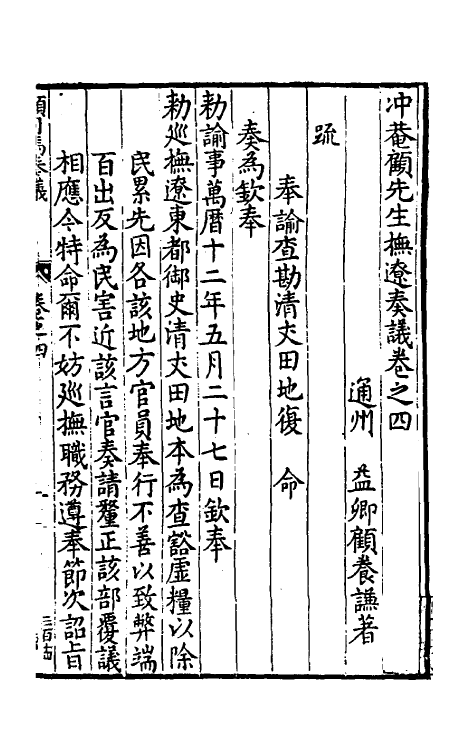 冲菴顧先生撫遼奏議卷之四
通州　益卿顧養謙著
疏
奉諭查勘清丈田地復　命
奏為欽奉
勅諭事萬曆十二年五月二十七日欽奉
勅廵撫遼東都御史清丈田地本為查豁虛糧以除
民累先因各該地方官員奉行不善以致弊端
百出反為民害近該言官奏請釐正該部覆議
相應今特命爾不妨廵撫職務遵奉節次詔旨
卷之四
一